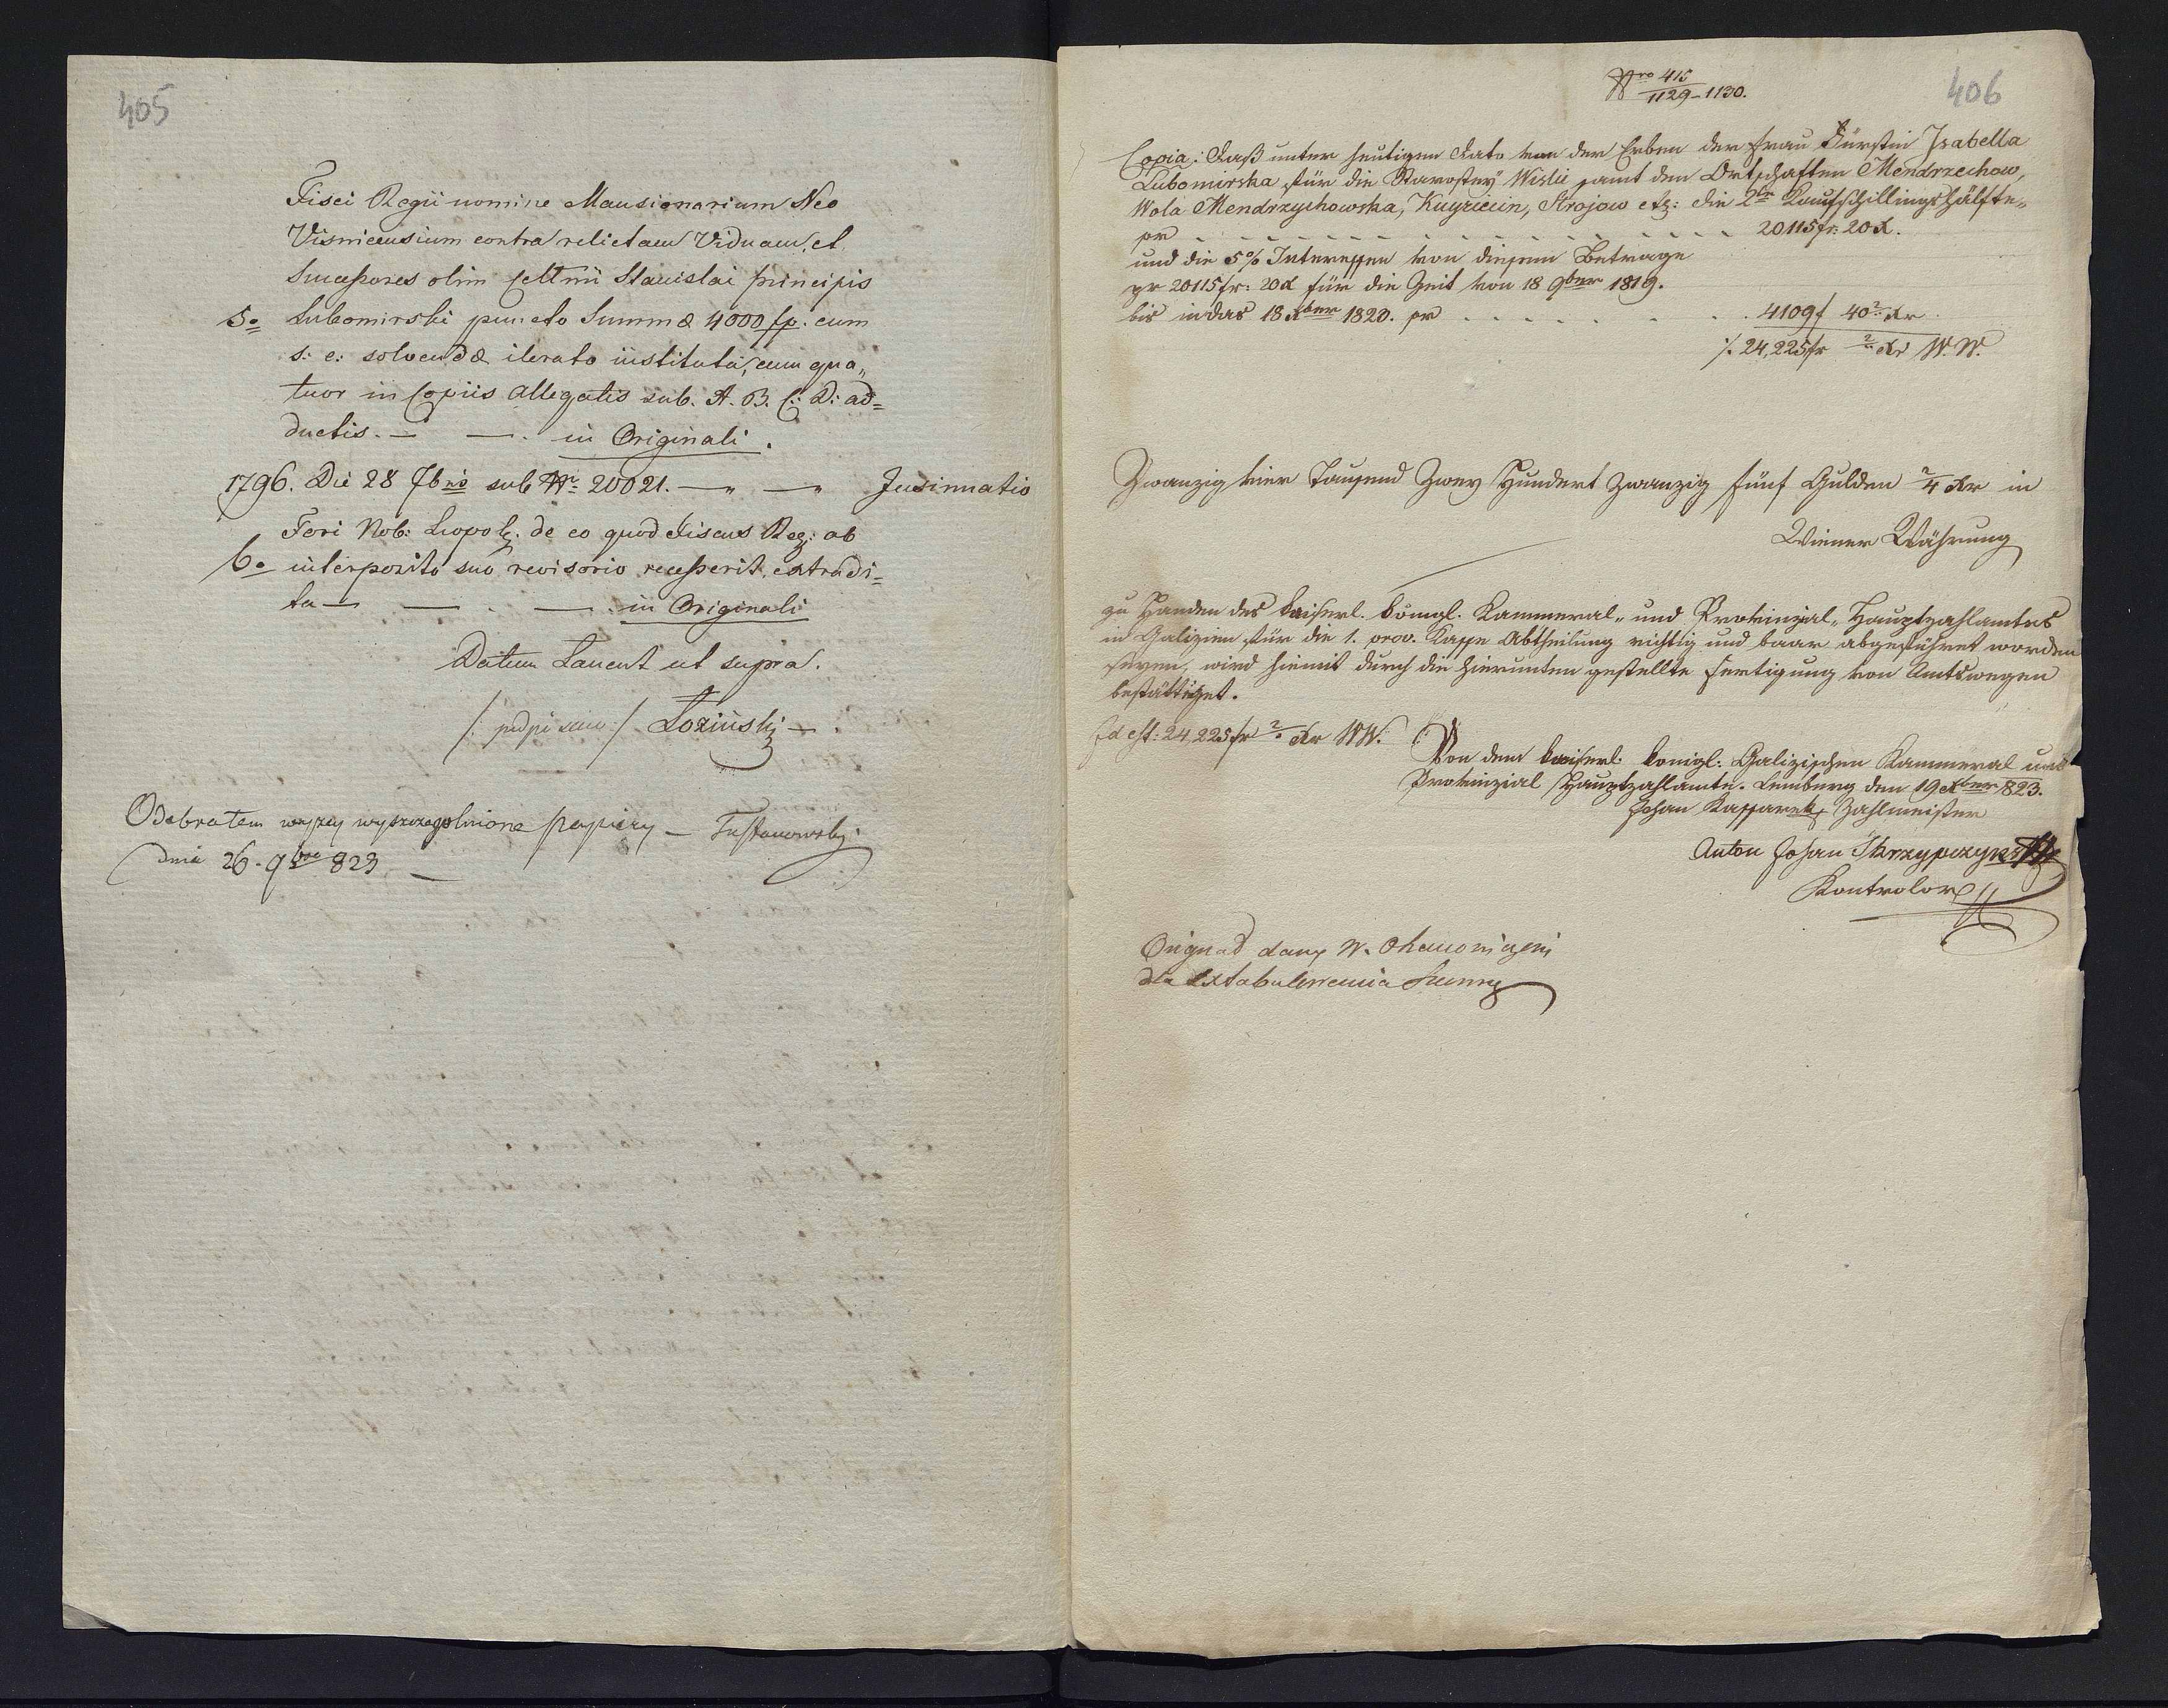 405
Fisci Regii nomine Mansionarium Neo
Visnicensium contra relictam Viduam, et
Successores olim Celtmi Stanislai principis
5o Lubomirski puncto Summæ 4000 fp. cum
s: c: solvendæ iterato instituta, cum qua„
tuor in Copiis allegatis sub. A. B. C: D: ad=
ductis. — — . in Originali .
1796. Die 28 7bris sub Nr 20021. —„ —„ Insinuatio
Fori Nob: Leopol: de eo quod Fiscus Reg: ab
6o interposito suo revisorio recesserit, extradi=
ta — — . — . in Originali
Datum Lancut ut supra.
/: podpisano :/ Łoziński — .
Odebrałem wyżey wyszczegolnione papiery — Tustanowski
dnia 26. 9bra 823 —
406
Nro 415
1129–1130.
Copia: Daß unter heutigen Dato von den Erben der Frau Fürstin Isabella
Lubomirska für die Starostey Wislic samt den Ortschaften Mendrzechow,
Wola Mendrzychowska, Strojow etz: die 2te Kaufschillingshälfte„
pr . . . . . 20115 fr: 20 x.
und die 5 % Interessen von diesem Betrage
pr 20115 fr: 20 x für die Zeit von 18 9ber 1819.
bis in das 18 Xber 1823. pr . . . . . 4109 f 40 2/. Xr
/. 24,225 fr 2/. Xr W. W.
Zwanzig vier Tausend Zwey Hundert Zwanzig fünf Gulden 2/4 Xr in
Wiener Währung
zu Handen des kaiserl. königl. Kammeral- und Provinzial- Hauptzahlamtes
in Galizien für die 1. prov. Kasse Abtheilung richtig und baar abgeführet worden
seyen, wird hiemit durch die hierunten gestellte Fertigung von Amtswegen
bestättiget.
Id est: 24,225 fr 2/. Xr WW.
Von dem kaiserl. königl: Galizischen Kammeral und
Provinzial Hauptzahlamte. Lemberg den 19 Xber 823.
Johan Kasparek Zahlmeister
Anton Johan Skrzypczyński
Kontrolor
Orignał dany W.
dla Extabulowania Summy